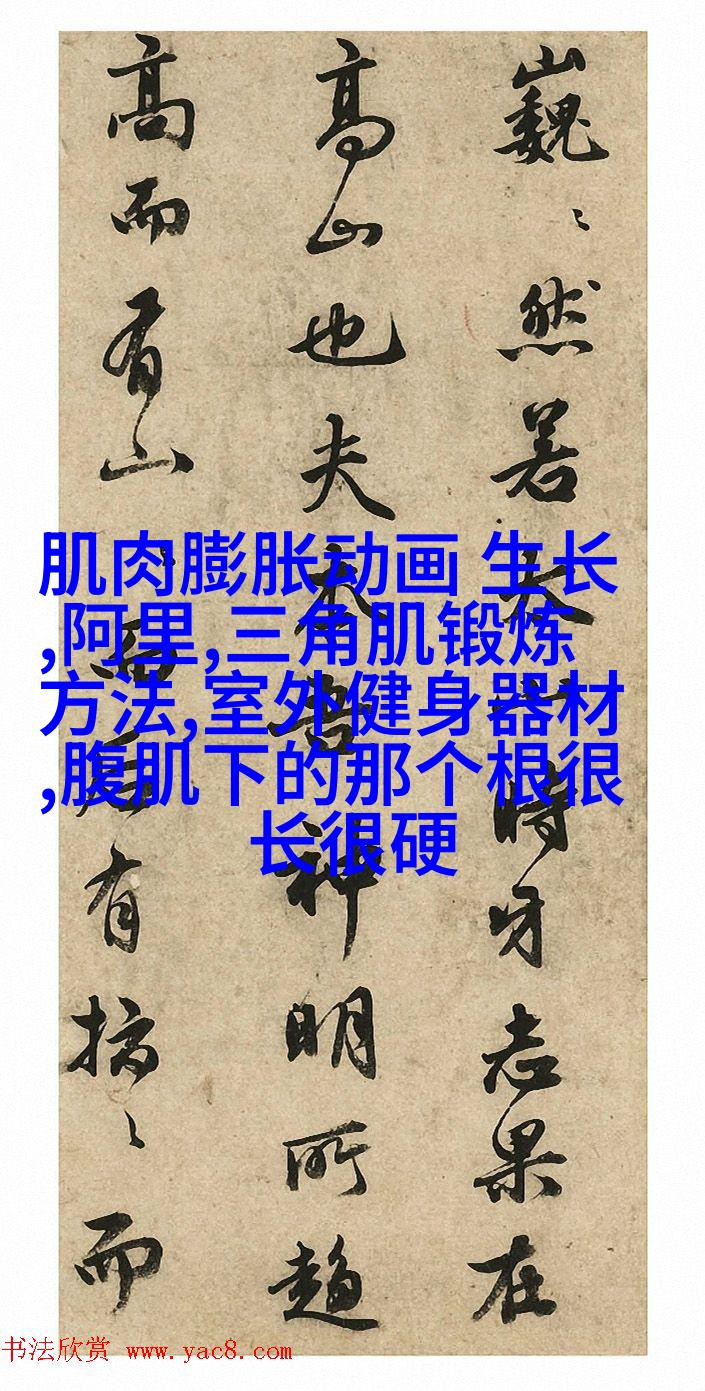 巍〻然若太時牙志果在
高山也夫吾神明所趨
高而有山有搞〻而
肌肉膨胀动画 生长
,阿里,三角肌锻炼
方法,室外健身器材
,腹肌下的那个根很
长很硬
书法欣赏 www.yac8.com